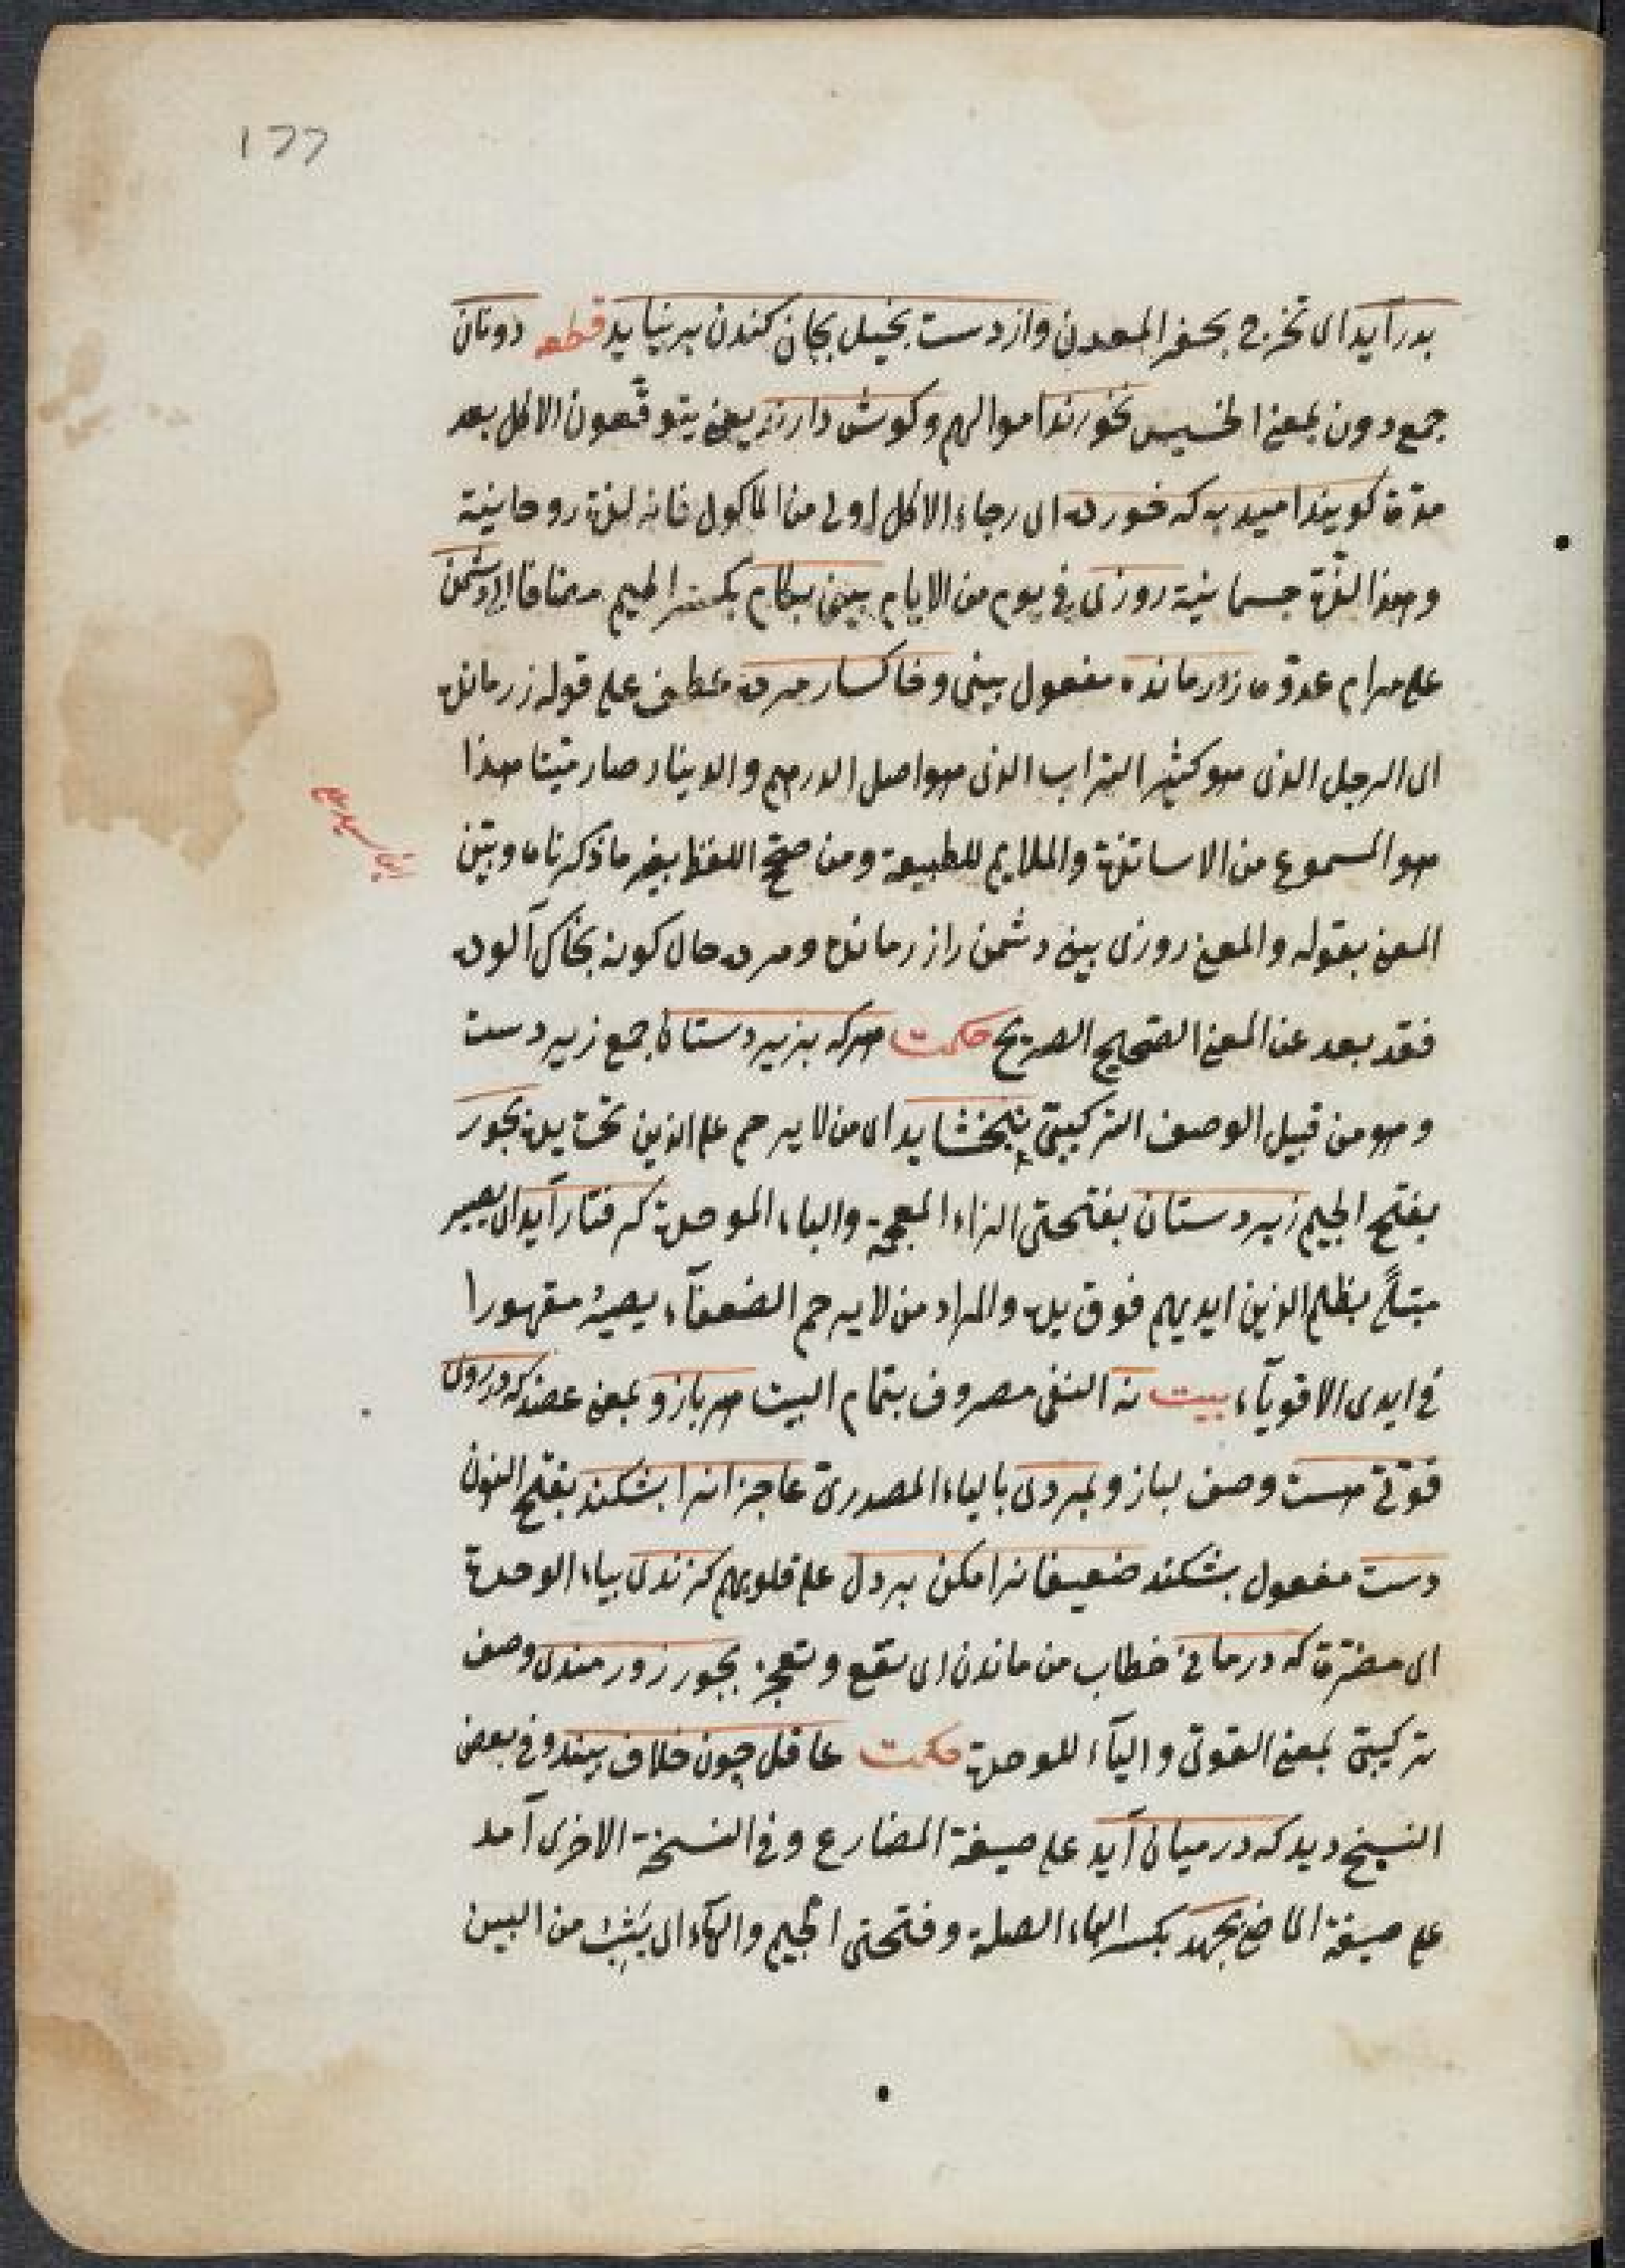 ١٦٦
بدر آید ای تخرج بحفر المعدن و از دست بخیل بجان کندن بدر نیاید قطعه دونان
جمع دون بمعنی الخسیس نخورند اموالهم و کوش دارند یعنی یتوقعون الاکل بعد
مدة کویند امید به که خورده ای رجاء الاکل اولی من الماکول فانه لذة روحانیة
وهذا لذة جسمانیة روزی فی یوم من الایام بینی بکام بکسر المیم مضافا الی دشمن
علی مرام عدو مازدر مانده مفعول بینی و خاکسار مرده عطف علی قوله زر مانده
ای الرجل الذی هو کثیر التراب الذی هو اصل الدرهم والدینار صار میتا هذا
هو المسموع من الاساتذة والملایم للطبیعة ومن صحح اللفظ بغیر ماذکرناه وبین
المعنی بقوله والمعنی روزی بینی دشمن را زر مانده و مرده حال کونه بخاک آلوده
فقد بعد عن المعنی الصحیح الصریح حکمت هرکه بزیر دستان جمع زیر دست
وهو من قبیل الوصف الترکیبی نبخشاید ای من لا یرحم علی الذین تحت یده بجور
بفتح الجیم زبر دستان بفتحتی الزاء المعجمة والباء الموحدة کرفتار آید ای یصیر
مبتلًی بظلم الذین ایدیهم فوق یده والمراد من لا یرحم الضعفآء یصیر مقهورا
فی ایدی الاقویآء بیت نه النفی مصروف بتمام البیت هر بازو بمعنی عضد که در وی
قوتی هست وصف لبازو بمردی بالیاء المصدری عاجزانرا بشکند بفتح النون
دست مفعول بشکند ضعیفانرا مکن بر دل علی قلوبهم کزندی بیاء الوحدة
ای مضرة که درمانی خطاب من ماندن ای تقع وتعجز بجور زورمندی وصف
ترکیبی بمعنی القوی والیآء للوحدة حکمت عاقل چون خلاف بیند وفی بعض
النسخ دید که در میان آید علی صیغة المضارع وفی النسخة الاخری آمد
علی صیغة الماضی بجهد بکسر الباء الصلة وفتحتی الجیم والهآء ای یثب من البین